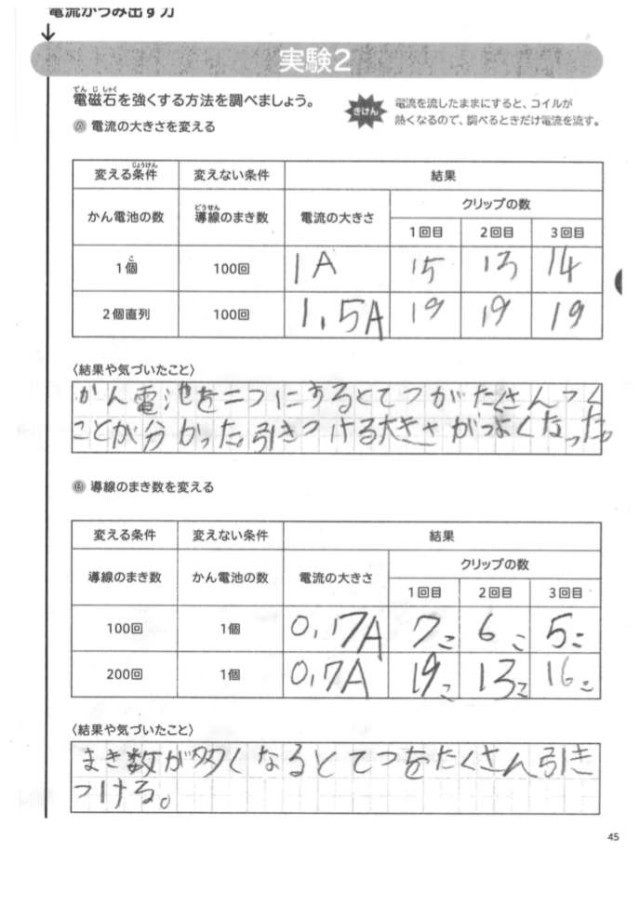 電流がうみ出す力
実験2
でん じ しゃく
電磁石を強くする方法を調べましょう。
きけん
電流を流したままにすると、コイルが
熱くなるので、調べるときだけ電流を流す。
あ 電流の大きさを変える
じょうけん
変える条件 変えない条件 結果
かん電池の数 導線のまき数 電流の大きさ クリップの数
どうせん
1回目 2回目 3回目
こ
1個 100回 1A 15 13 14
2個直列 100回 1,5A 19 19 19
〈結果や気づいたこと〉
かん電池を二つにするとてつがたくさんつく
ことが分かった。引きつける大きさがつよくなった。
い 導線のまき数を変える
変える条件 変えない条件 結果
導線のまき数 かん電池の数 電流の大きさ クリップの数
1回目 2回目 3回目
100回 1個 0,17A 7こ 6こ 5こ
200回 1個 0,17A 19こ 13こ 16こ
〈結果や気づいたこと〉
まき数が多くなるとてつをたくさん引き
つける。
45